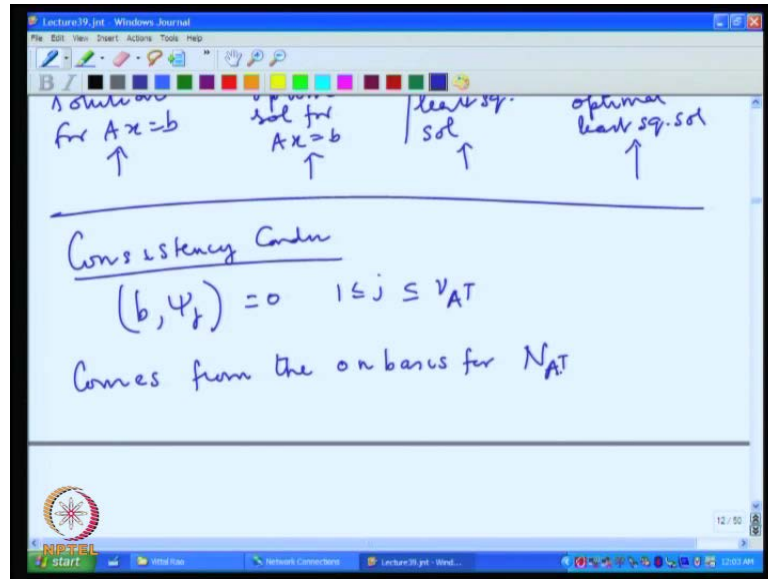 Lecture39.jnt - Windows Journal
File Edit View Insert Actions Tools Help
B I
solution
for Ax=b
sol for
Ax=b
least sq.
sol
optimal
least sq. sol
Consistency Condn
(b, Ψj) = 0 1 ≤ j ≤ νAT
Comes from the on basis for NAT
12 / 50
NPTEL
start Vittal Rao Network Connections Lecture39.jnt - Wind... 12:03 AM